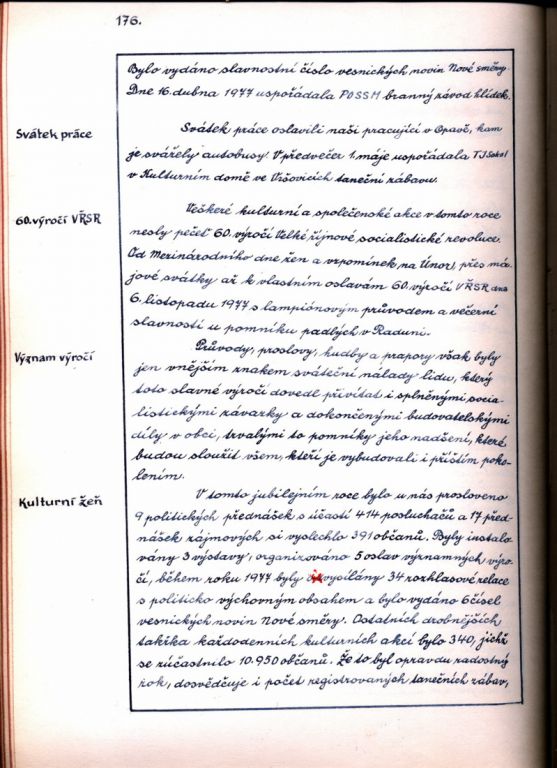 176.
Bylo vydáno slavnostní číslo vesnických novin Nové směry.
Dne 16. dubna 1977 uspořádala POSSM branný závod hlídek.
Svátek práce
Svátek práce oslavili naši pracující v Opavě, kam
je svážely autobusy. V předvečer 1. máje uspořádala TJ Sokol
v Kulturním domě ve Vršovicích taneční zábavu.
60. výročí VŘSR
Veškeré kulturní a společenské akce v tomto roce
nesly pečeť 60. výročí Velké říjnové socialistické revoluce.
Od Mezinárodního dne žen a vzpomínek na Únor, přes má-
jové svátky až k vlastním oslavám 60. výročí VŘSR dne
6. listopadu 1977 s lampiónovým průvodem a večerní
slavností u pomníku padlých v Raduni.
Význam výročí
Průvody, proslovy, hudby a prapory však byly
jen vnějším znakem sváteční nálady lidu, který
toto slavné výročí dovedl přivítat i splněnými socia-
listickými závazky a dokončenými budovatelskými
díly v obci, trvalými to pomníky jeho nadšení, které
budou sloužit všem, kteří je vybudovali i příštím poko-
lením.
Kulturní žeň
V tomto jubilejním roce bylo u nás prosloveno
9 politických přednášek s účastí 414 posluchačů a 17 před-
nášek zájmových si vyslechlo 391 občanů. Byly instalo-
vány 3 výstavy, organizováno 5 oslav významných výro-
čí, během roku 1977 byly vysílány 34 rozhlasové relace
s politicko výchovným obsahem a bylo vydáno 6 čísel
vesnických novin Nové směry. Ostatních drobnějších
takřka každodenních kulturních akcí bylo 340, jichž
se zúčastnilo 10.950 občanů. Že to byl opravdu radostný
rok, dosvědčuje i počet registrovaných tanečních zábav,